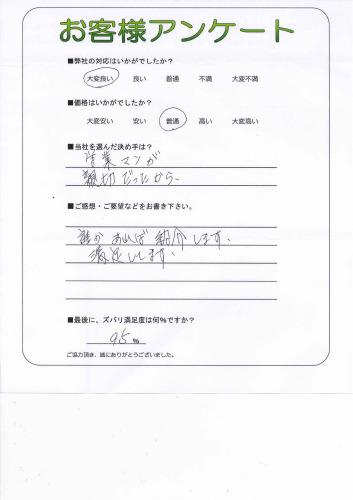 お客様アンケート
■弊社の対応はいかがでしたか?
大変良い 良い 普通 不満 大変不満
■価格はいかがでしたか?
大変安い 安い 普通 高い 大変高い
■当社を選んだ決め手は?
営業マンが
親切だったから、
■ご感想・ご要望などをお書き下さい。
誰かあれば紹介します、
満足しします、
■最後に、ズバリ満足度は何%ですか?
95 %
ご協力頂き、誠にありがとうございました。